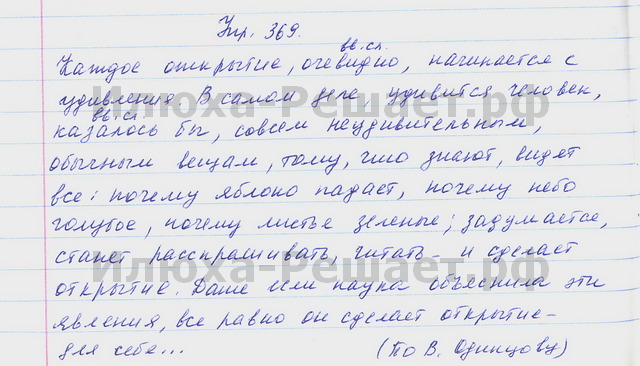 Упр. 369.
вв. сл.
Каждое открытие, очевидно, начинается с
удивления. В самом деле, удивится человек,
вв. сл.
казалось бы, совсем неудивительным,
обычным вещам, тому, что знают, видят
все: почему яблоко падает, почему небо
голубое, почему листье зеленые; задумается,
станет расспрашивать, читать – и сделает
открытие. Даже если наука объяснила эти
явления, все равно он сделает открытие –
для себя...
(По В. Одинцову)
Илюха-Решает.рф
Илюха-Решает.рф